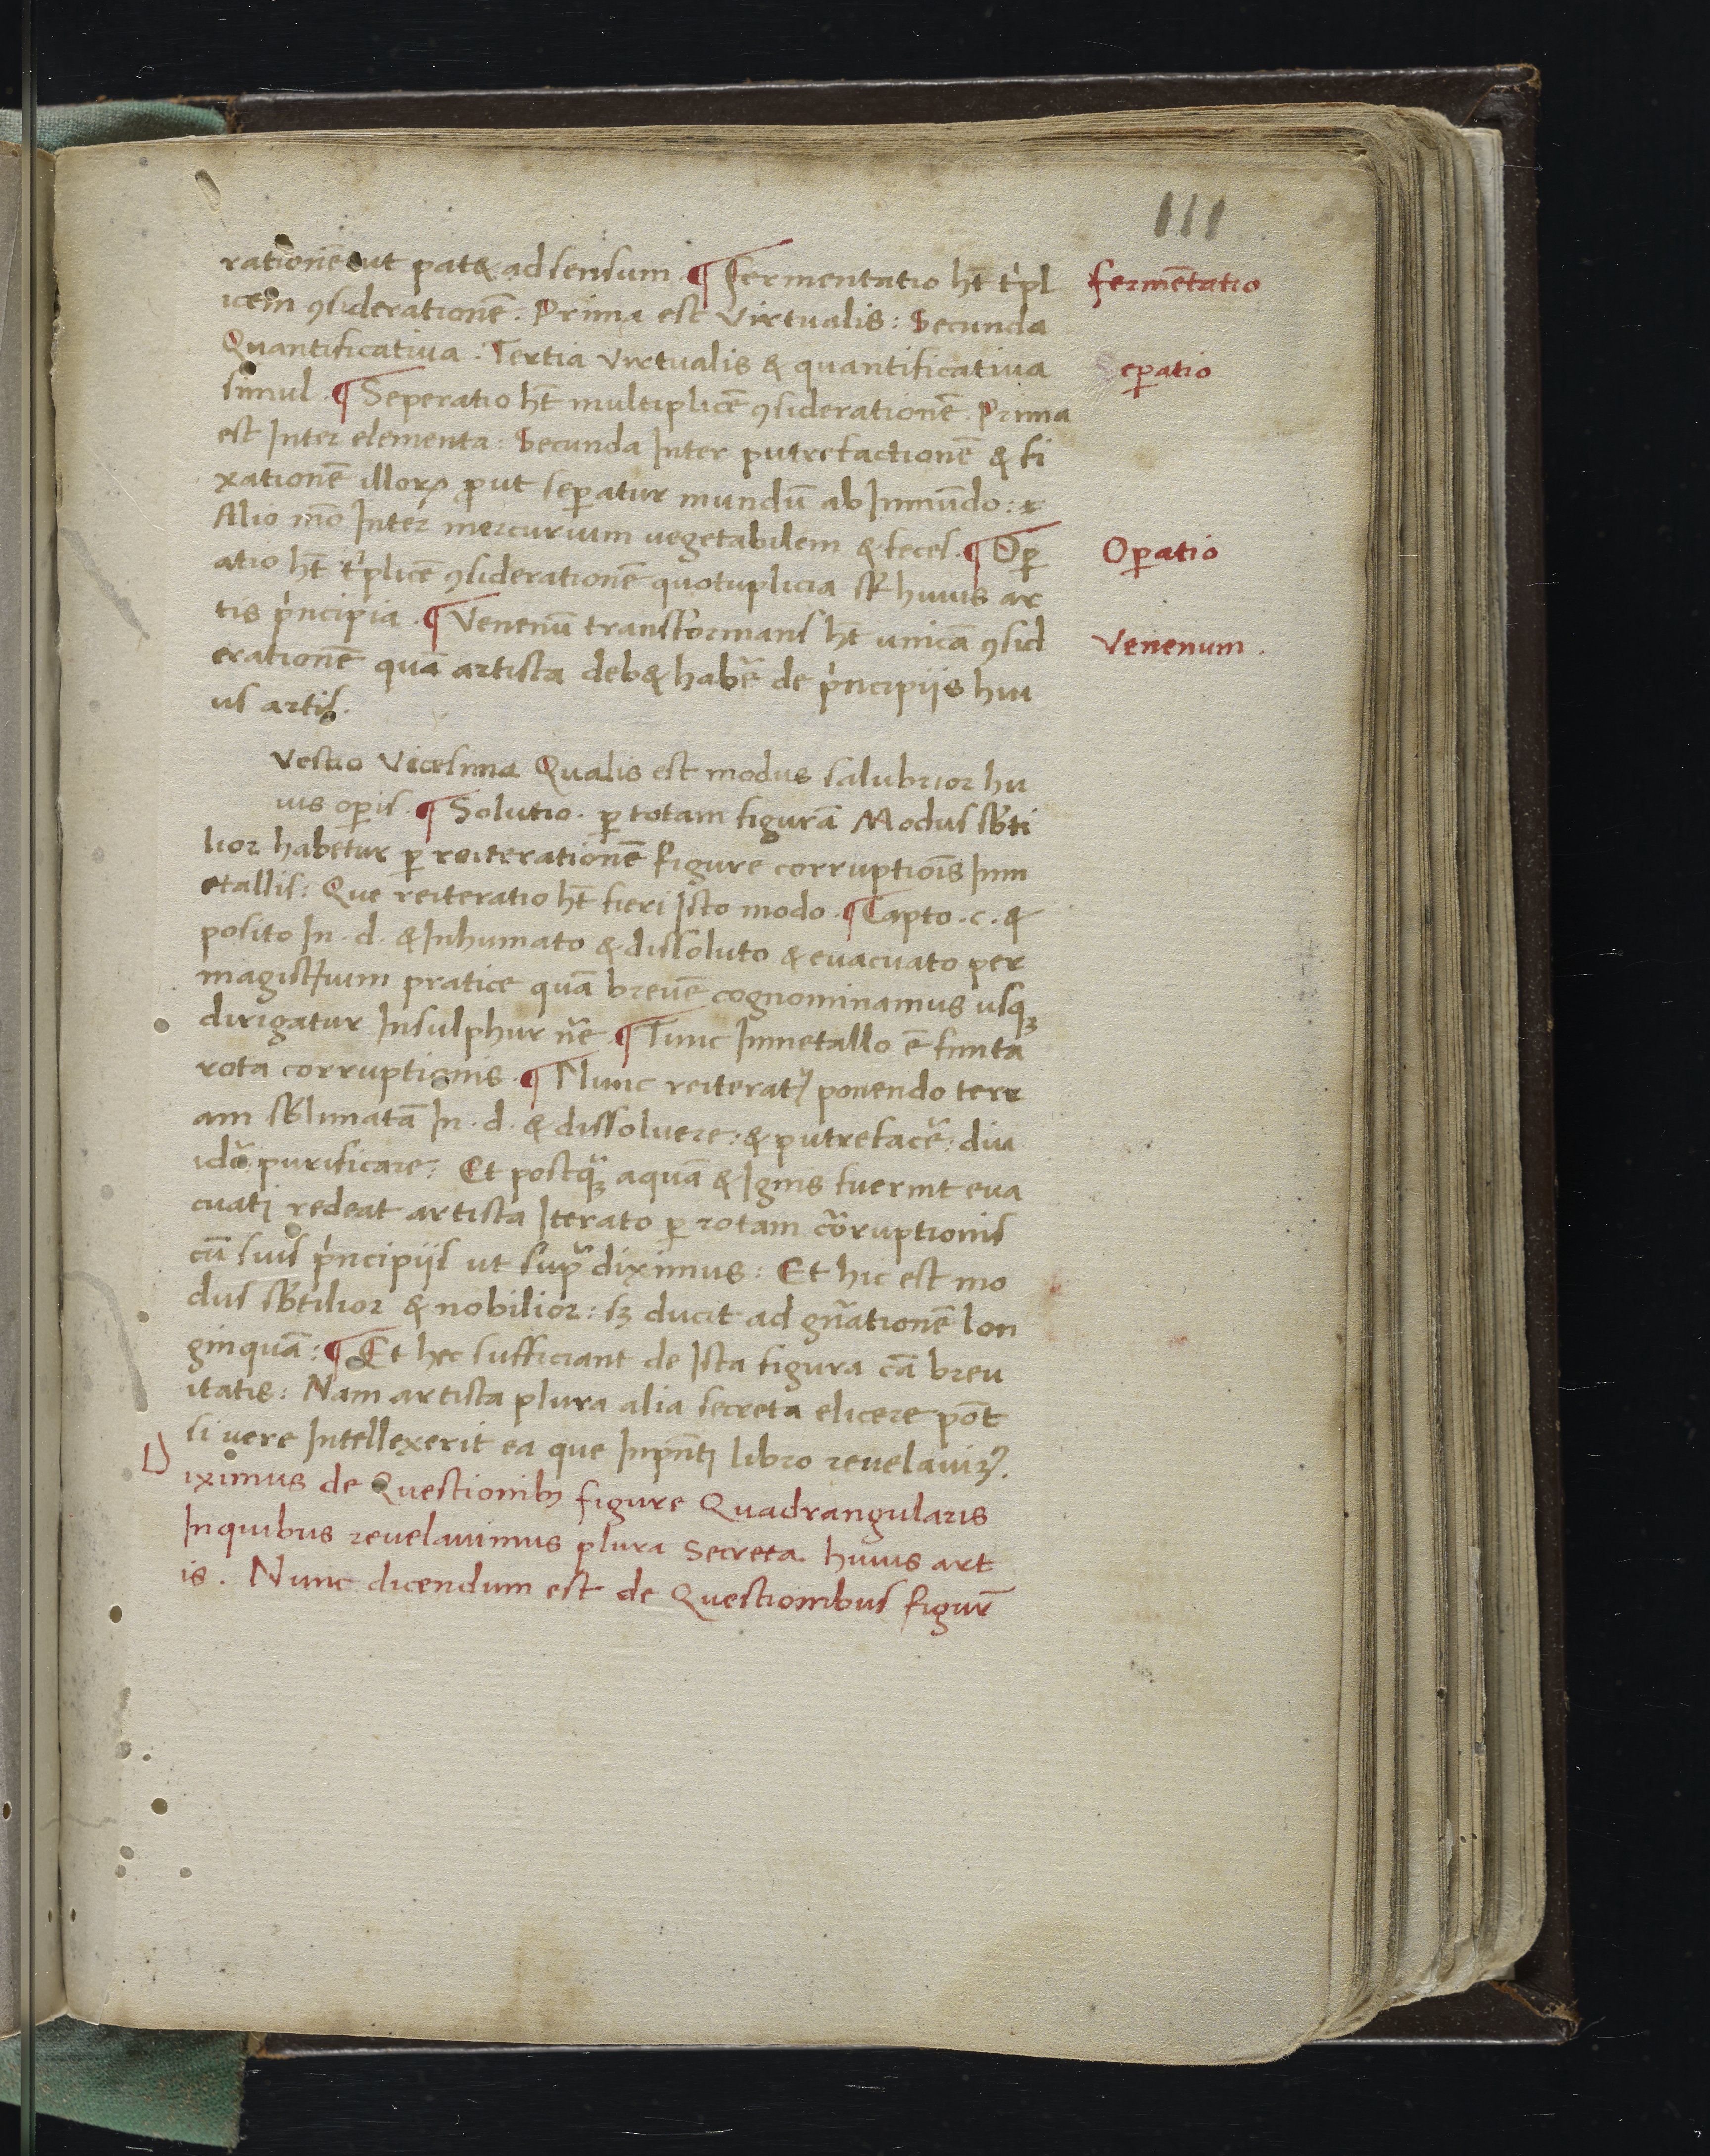 111
rationē ut pat& ad sensum ¶ fermentatio ht̄ tͥpl
fermētatio
icem ꝯsiderationē. Prima est Virtualis: Secunda
Quantificatiua. Tertia virtualis & quantificatiua
simul. ¶ Seperatio ht̄ multiplicē ꝯsiderationē. Prima
Seꝑatio
est Inter elementa: Secunda Inter putrefactionē & fi
xationē illoꝝ ꝓut seꝑatur mundū ab Inmūdo:
Alio mō Inter mercurium uegetabilem & feces. ¶ Oꝑ
Oꝑatio
atio ht̄ tͥplicē ꝯsiderationē quotuplicia st̄ huius ar
tis pͥncipia. ¶ Venenū transformans ht̄ unicā ꝯsid
Venenum.
erationē quā artista deb& habē de pͥncipijs hui
us artis.
Vestio Vicesima Qualis est modus salubrior hu
ius oꝑis. ¶ Solutio. ꝑ totam figurā Modus sb̄ti
lior habetur ꝑ reiterationē figure corruptiōis Inm
etallis: Que reiteratio ht̄ fieri Isto modo. ¶ Capto. c. &
posito In. d. & Inhumato & dissoluto & euacuato per
magist̄ium pratice quā breuē cognominamus usqꝫ
dirigatur Insulphur nr̄e. ¶ Tunc Inmetallo ē finita
rota corruptionis. ¶ Nunc reiteratꝰ ponendo terr
am sb̄limatā In. d. & dissoluere: & putrefacē: diu
idē purificare: Et postqꝫ aquā & Ignis fuerint eua
cuati redeat artista Iterato ꝑ rotam corruptionis
cū suis pͥncipijs ut supͣ diximus: Et hic est mo
dus sb̄tilior & nobilior: sꝫ ducit ad gn̄ationē lon
ginquā: ¶ Et hec sufficiant de Ista figura cā breu
itatis: Nam artista plura alia secreta elicere pōt
si uere Intellexerit ea que Inpn̄ti libro reuelauimꝰ.
D
iximus de Questionibꝫ figure Quadrangularis
In quibus reuelauimus plura Secreta huius art
is. Nunc dicendum est de Questionibus figur̄